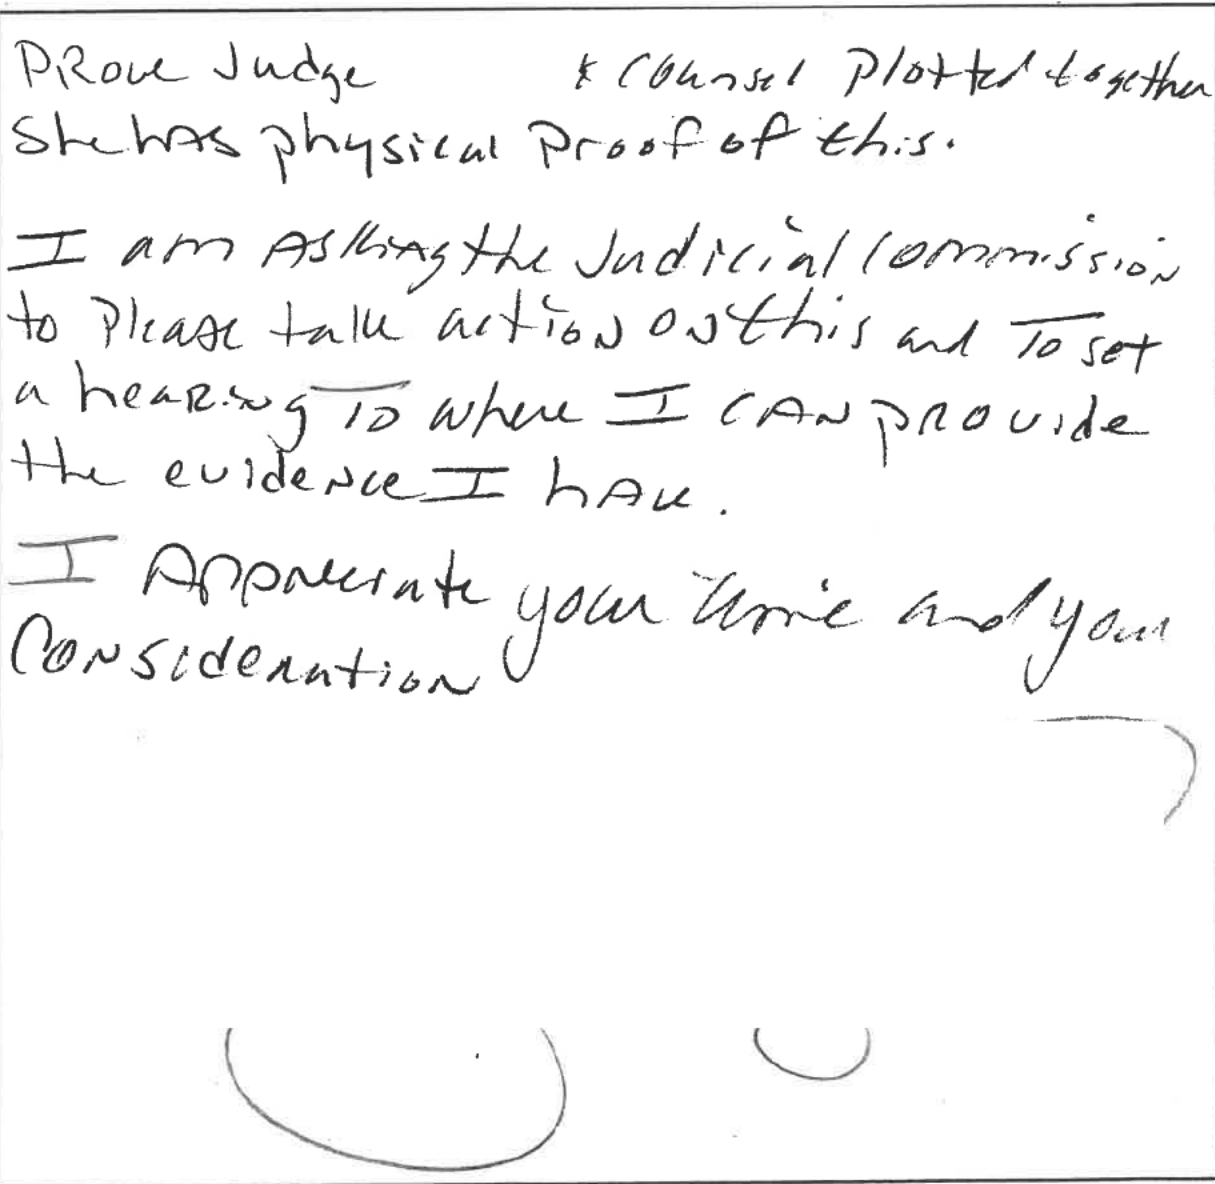 Prove Judge & Counsel Plotted together
She has physical Proof of this.
I am Asking the Judicial Commission
to Please take action on this and To set
a hearing To where I CAN provide
the evidence I have.
I Appreciate your time and your
Consideration